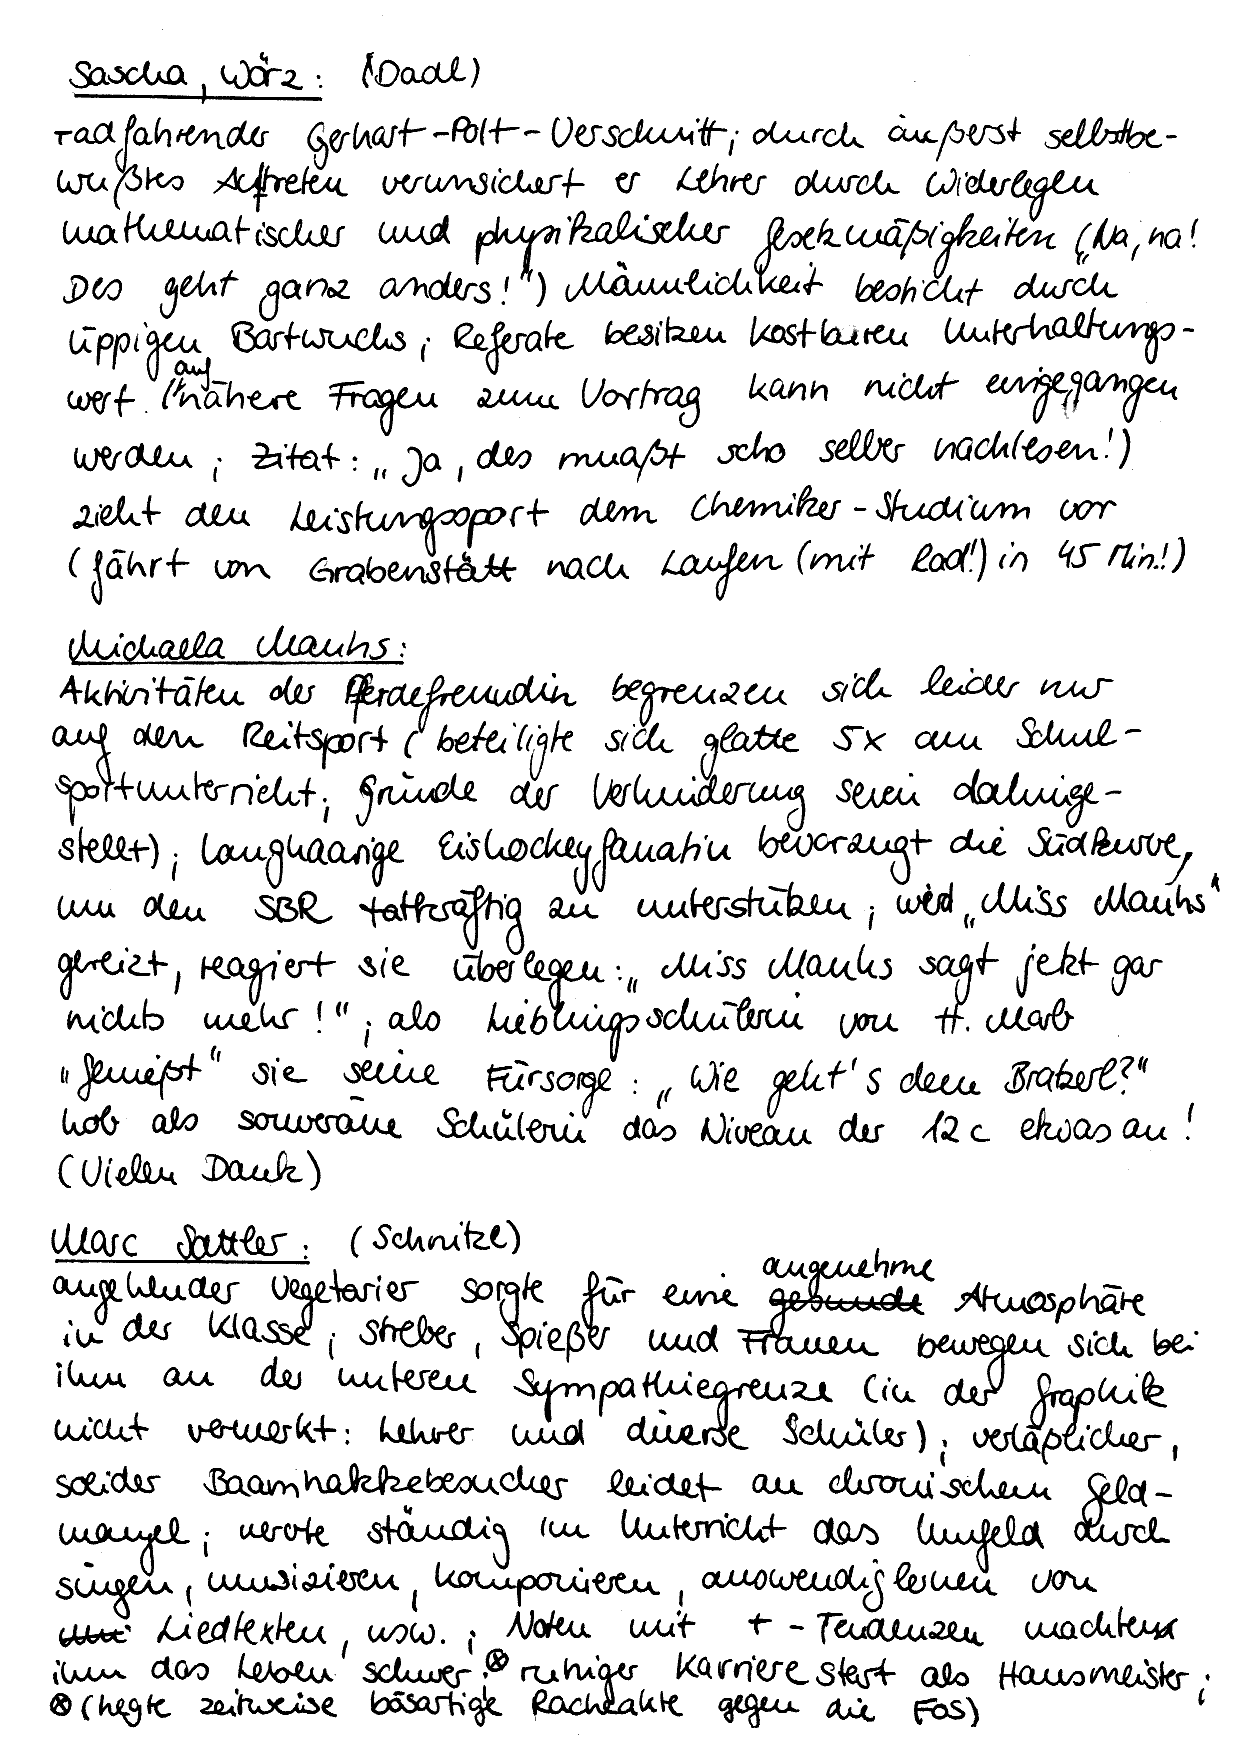 Sascha, Wörz: (Dadl)
radfahrender Gerhart-Polt-Verschnitt; durch äußerst selbstbe-
wußtes Auftreten verunsichert er Lehrer durch Widerlegen
mathematischer und physikalischer Gesetzmäßigkeiten („Na, na!
Des geht ganz anders!") Männlichkeit besticht durch
üppigen Bartwuchs; Referate besitzen kostbaren Unterhaltungs-
wert (auf nähere Fragen zum Vortrag kann nicht eingegangen
werden; Zitat: „Ja, des muaßt scho selber nachlesen!)
zieht den Leistungssport dem Chemiker-Studium vor
(fährt von Grabenstätt nach Laufen (mit Rad!) in 45 Min!)
Michaela Mauhs:
Aktivitäten der Pferdefreundin begrenzen sich leider nur
auf den Reitsport (beteiligte sich glatte 5x am Schul-
sportunterricht; Gründe der Verhinderung seien dahinge-
stellt); langhaarige Eishockeyfanatin bevorzugt die Südkurve,
um den SBR tatkräftig zu unterstützen; wird „Miss Mauhs"
gereizt, reagiert sie überlegen: „Miss Mauhs sagt jetzt gar
nichts mehr!"; als Lieblingsschülerin von H. Marb
"genießt" sie seine Fürsorge: „Wie geht's dem Bratzerl?"
hob als souveräne Schülerin das Niveau der 12c etwas an!
(Vielen Dank)
Marc Sattler: (Schnitzl)
angehender Vegetarier sorgte für eine angenehme Atmosphäre
in der Klasse; Streber, Spießer und Frauen bewegen sich bei
ihm an der unteren Sympathiegrenze (in der Graphik
nicht vermerkt: Lehrer und diverse Schüler); verläßlicher,
solider Baamhakkebesucher leidet an chronischem Geld-
mangel; nervte ständig im Unterricht das Umfeld durch
singen, musizieren, komponieren, auswendiglernen von
Liedtexten, usw.; Noten mit + - Tendenzen machten
ihm das Leben schwer; ⊗ ruhiger Karrierestart als Hausmeister;
⊗ (hegte zeitweise bösartige Racheakte gegen die FOS)